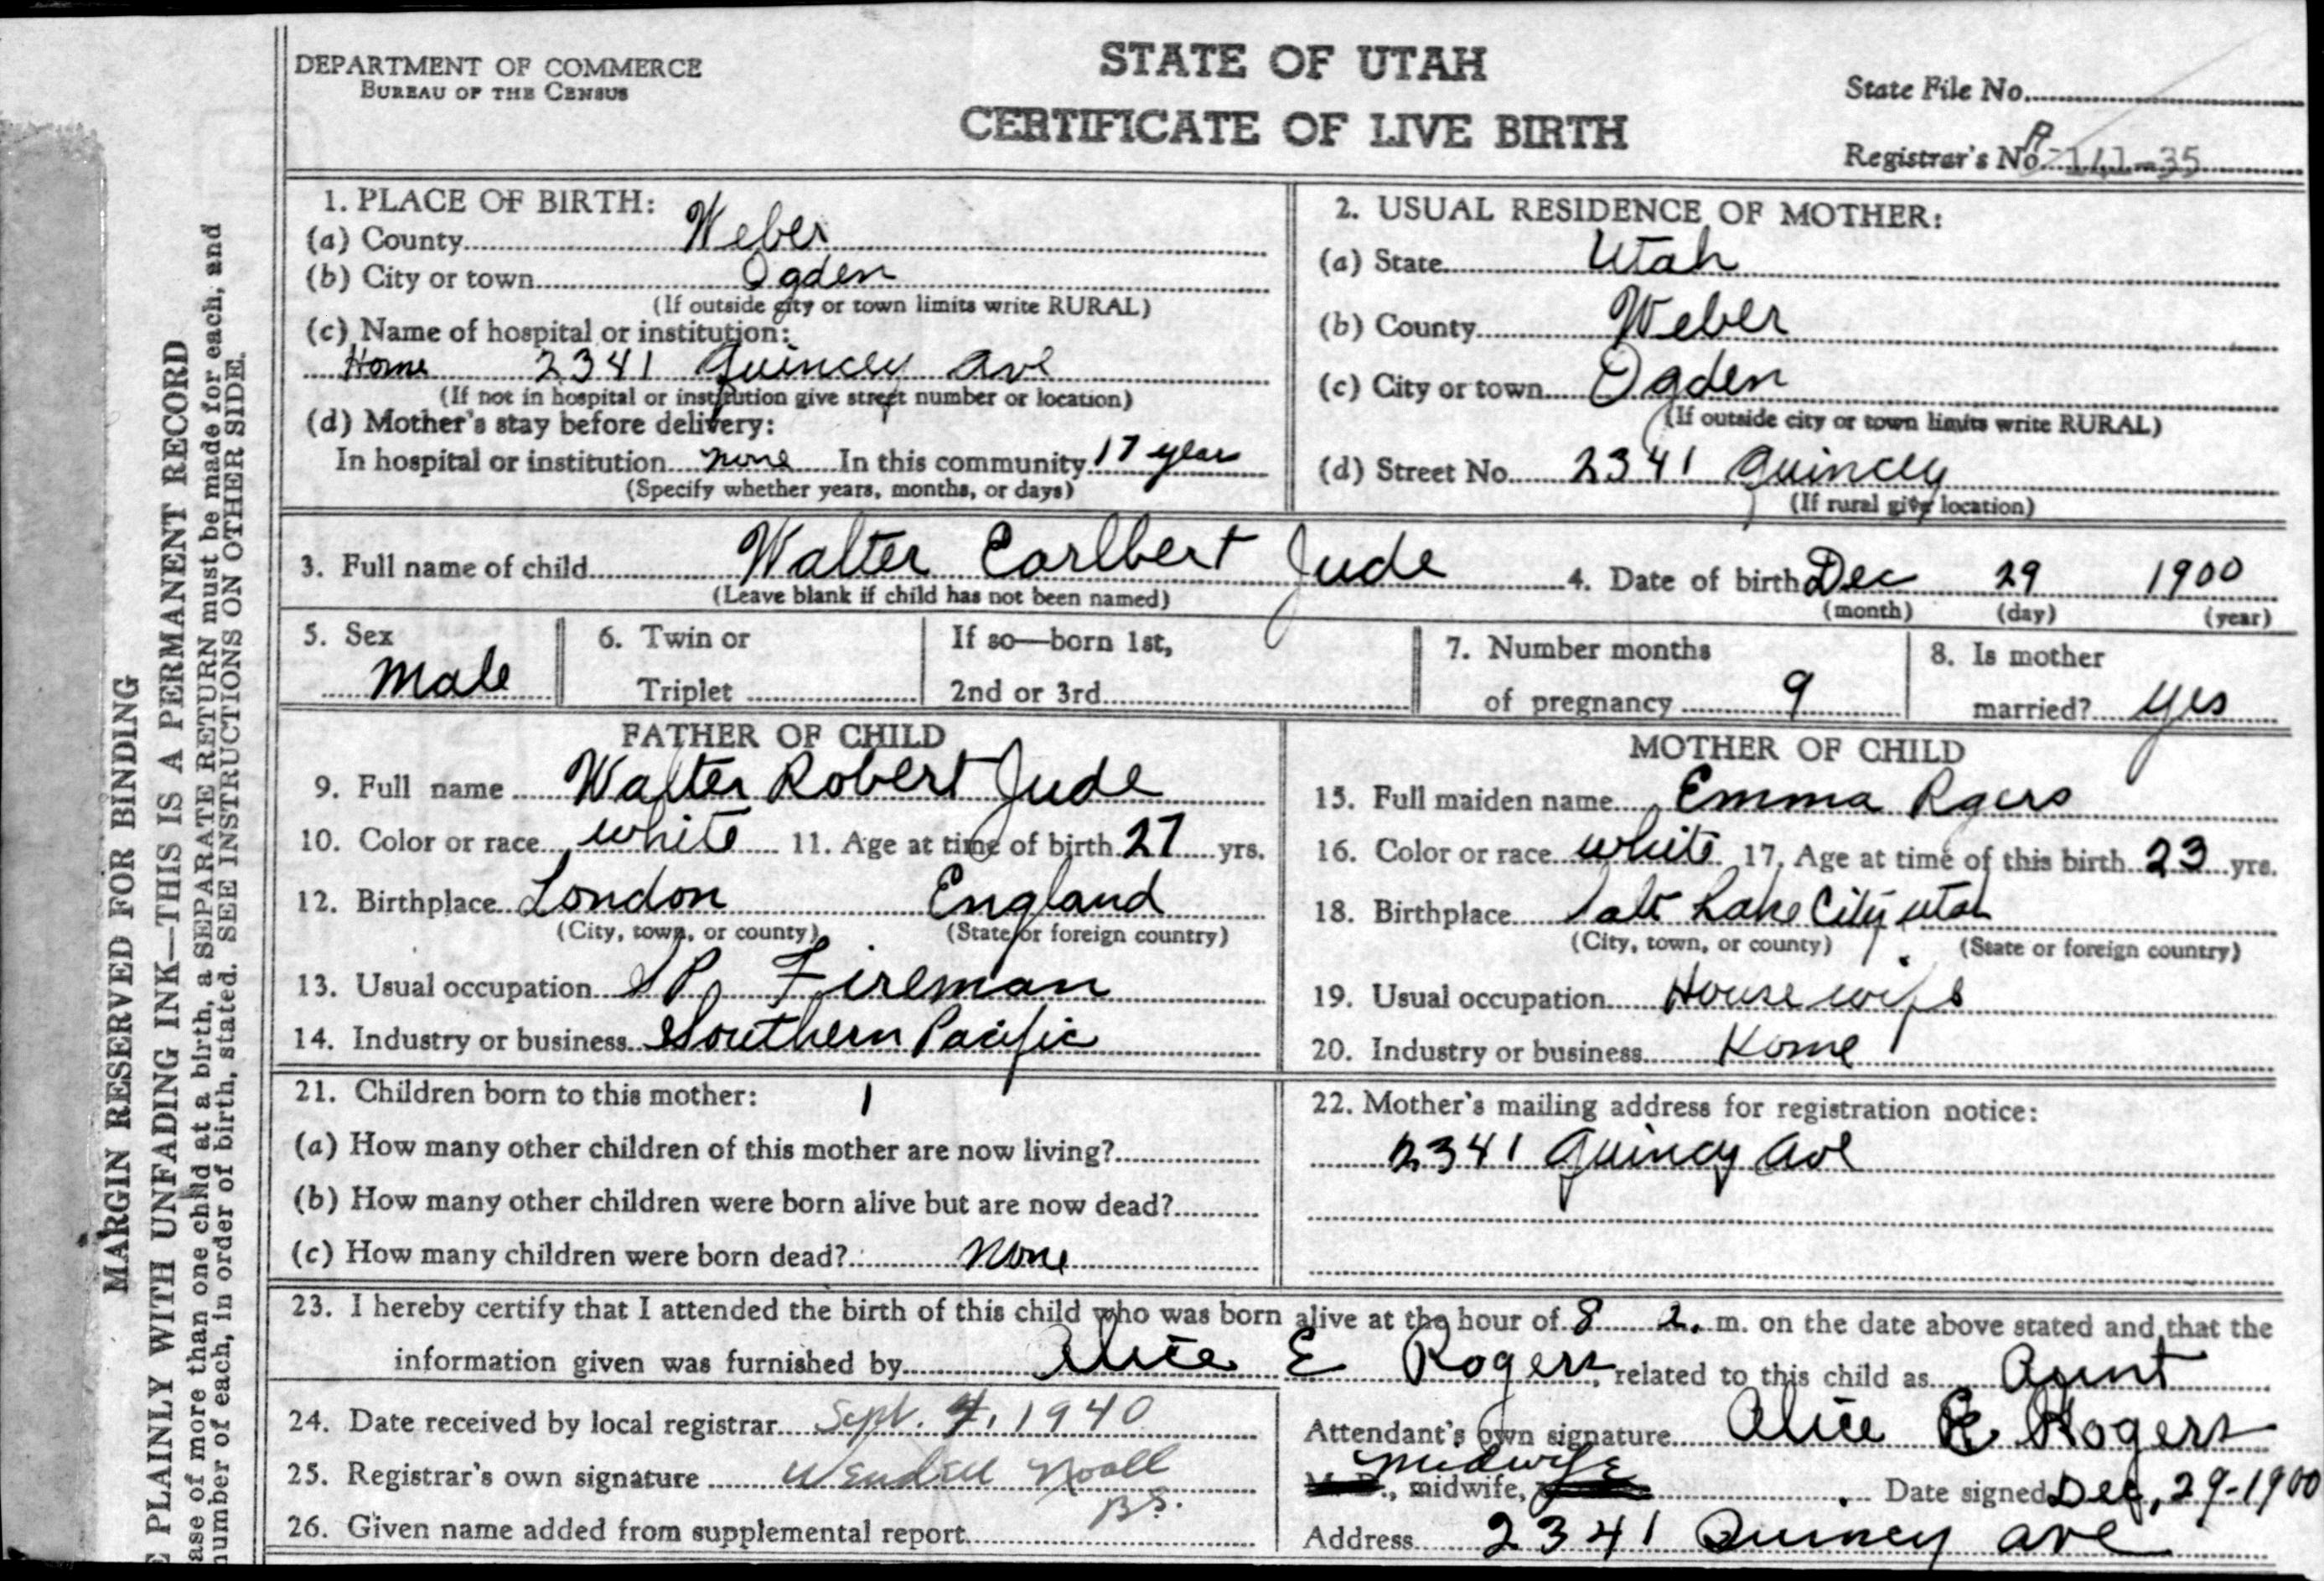 DEPARTMENT OF COMMERCE
BUREAU OF THE CENSUS
STATE OF UTAH
CERTIFICATE OF LIVE BIRTH
State File No.
Registrar's No. 141-35
MARGIN RESERVED FOR BINDING
PLAINLY WITH UNFADING INK—THIS IS A PERMANENT RECORD
ase of more than one child at a birth, a SEPARATE RETURN must be made for each, and
number of each, in order of birth, stated. SEE INSTRUCTIONS ON OTHER SIDE.
1. PLACE OF BIRTH:
(a) County Weber
(b) City or town Ogden
(If outside city or town limits write RURAL)
(c) Name of hospital or institution:
Home 2341 Quincey Ave
(If not in hospital or institution give street number or location)
(d) Mother's stay before delivery:
In hospital or institution none In this community 17 year
(Specify whether years, months, or days)
2. USUAL RESIDENCE OF MOTHER:
(a) State Utah
(b) County Weber
(c) City or town Ogden
(If outside city or town limits write RURAL)
(d) Street No. 2341 Quincey
(If rural give location)
3. Full name of child Walter Earlbert Jude 4. Date of birth Dec 29 1900
(Leave blank if child has not been named) (month) (day) (year)
5. Sex Male
6. Twin or Triplet
If so—born 1st, 2nd or 3rd
7. Number months of pregnancy 9
8. Is mother married? yes
FATHER OF CHILD
9. Full name Walter Robert Jude
10. Color or race white 11. Age at time of birth 27 yrs.
12. Birthplace London England
(City, town, or county) (State or foreign country)
13. Usual occupation SP Fireman
14. Industry or business Southern Pacific
MOTHER OF CHILD
15. Full maiden name Emma Rgers
16. Color or race white 17. Age at time of this birth 23 yrs.
18. Birthplace Salt Lake City Utah
(City, town, or county) (State or foreign country)
19. Usual occupation Housewife
20. Industry or business Home
21. Children born to this mother: 1
(a) How many other children of this mother are now living?
(b) How many other children were born alive but are now dead?
(c) How many children were born dead? none
22. Mother's mailing address for registration notice:
2341 Quincy Ave
23. I hereby certify that I attended the birth of this child who was born alive at the hour of 8 a. m. on the date above stated and that the
information given was furnished by Alice E Rogers, related to this child as Aunt
24. Date received by local registrar Sept. 4, 1940
25. Registrar's own signature Wendell Noall
B.S.
26. Given name added from supplemental report
Attendant's own signature Alice E. Rogers
Midwife
M. D., midwife, Date signed Dec, 29-1900
Address 2341 Quincy ave